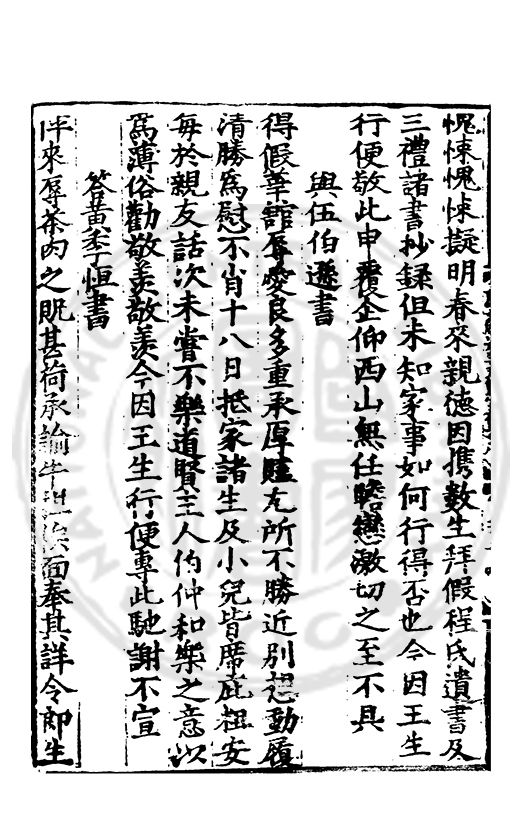 愧悚愧悚擬明春來親德因携數生拜假程氏遺書及
三禮諸書抄録但未知家事如何行得否也今因王生
行便敬此申覆企仰西山無任瞻戀激切之至不具
與伍伯遜書
得假華館辱愛良多重承厚贐尤所不勝近别起動履
清勝爲慰不肖十八日抵家諸生及小兒皆席庇粗安
每於親友話次未嘗不樂道賢主人伯仲和樂之意以
爲薄俗勸敬羨敬羨今因王生行便專此馳謝不宣
答黄季恒書
伻來辱茶肉之貺甚荷承諭 面奉其詳令郎生